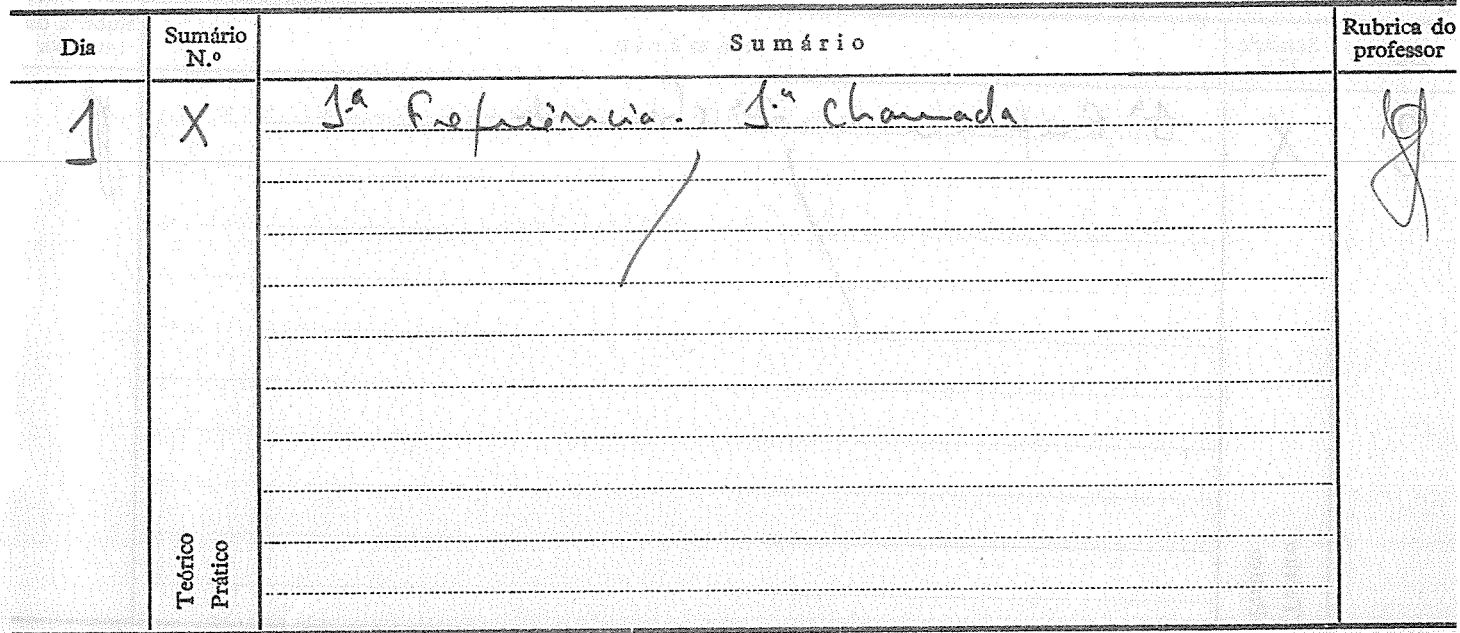 Dia Sumário N.º Sumário Rubrica do professor
1 X 1.ª Frequência. 1.ª Chamada
Teórico
Prático